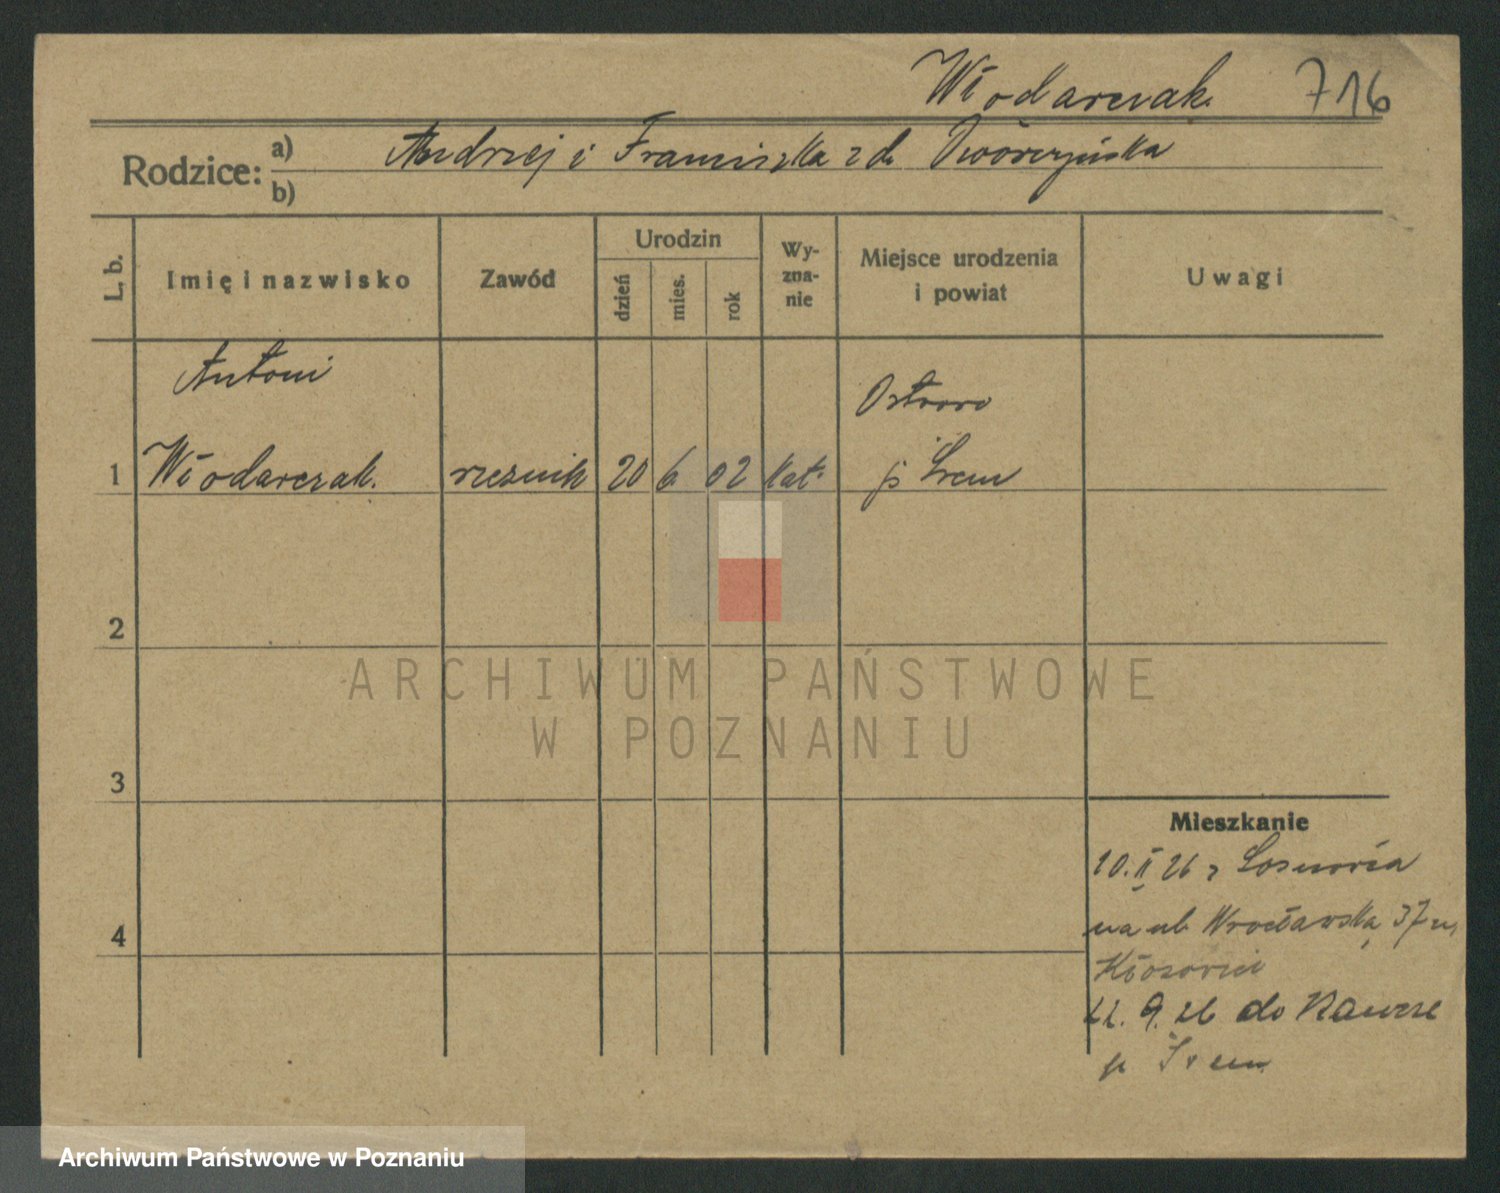 Włodarczak. 716
Rodzice: a) Andrzej i Franciszka z d. Dworczyńska
b)
L. b. Imię i nazwisko Zawód Urodzin dzień mies. rok Wyznanie Miejsce urodzenia i powiat Uwagi
Antoni
Ostrowo
1 Włodarczak. rzeźnik 20 6 02 kat. p. Śrem
2
ARCHIWUM PAŃSTWOWE
W POZNANIU
3
Mieszkanie
10. II 26 z
na ul. Wrocławska 37
4
22. 9. 26 do
p. Śrem
Archiwum Państwowe w Poznaniu